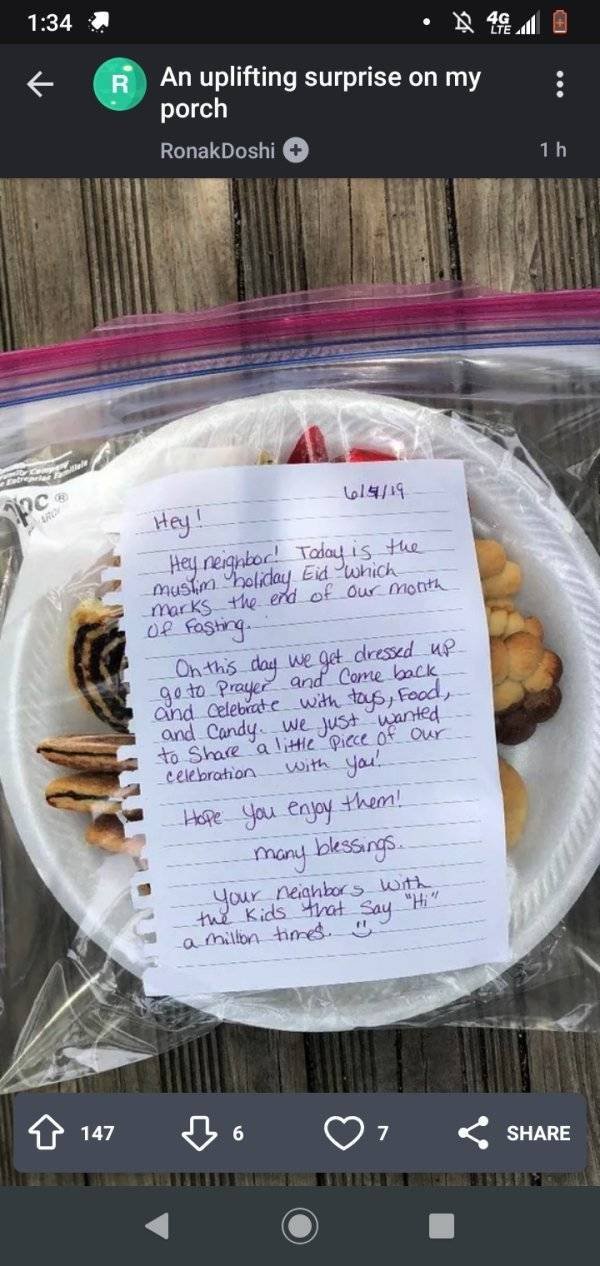 1:34
4G
LTE
R
An uplifting surprise on my
porch
RonakDoshi
1 h
6/4/19
Hey!
Hey neighbor! Today is the
muslim holiday Eid which
marks the end of our month
of Fasting.
On this day we get dressed up
go to Prayer and Come back
and celebrate with toys, Food,
and Candy. We just wanted
to Share a little Piece of our
celebration with you!
Hope you enjoy them!
many blessings.
Your neighbors with
the Kids that Say "Hi"
a million times.
147
6
7
SHARE